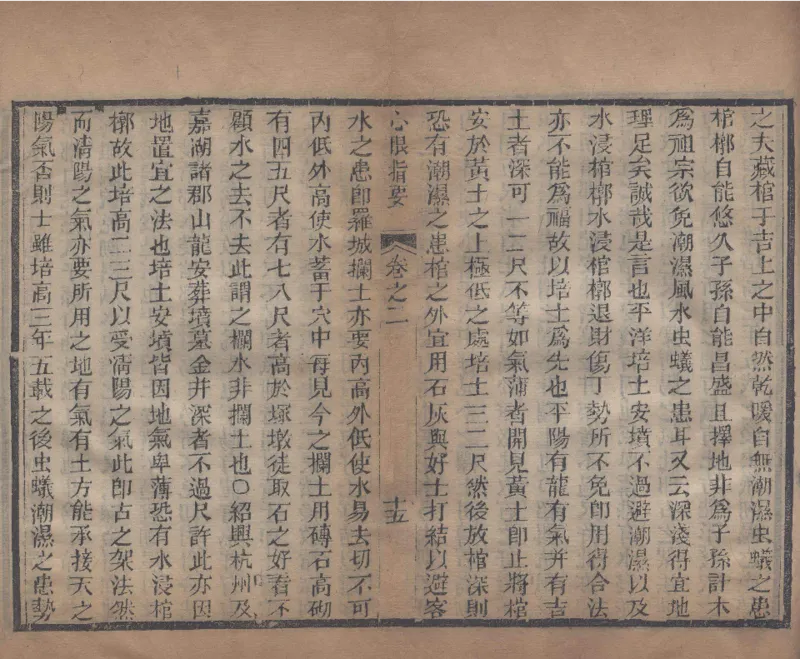 之夫藏棺于吉土之中自然乾暖自無潮濕虫蟻之患
棺槨自能悠久子孫自能昌盛且擇地非為子孫計木
為祖宗欲免潮濕風水虫蟻之患耳又云深淺得宜地
理足矣誠哉是言也平洋培土安墳不過避潮濕以及
水浸棺槨水浸棺槨退財傷丁勢所不免即用得合法
亦不能為福故以培土為先也平陽有龍有氣并有吉
土者深可一二尺不等如氣薄者開見黃土即止將棺
安於黃土之上極低之處培土三二尺然後放棺深則
恐有潮濕之患棺之外宜用石灰與好土打結以避客
心眼指要 卷之二 十五
水之患即羅城攔土亦要內高外低使水易去切不可
內低外高使水蓄于穴中每見今之攔土用磚石高砌
有四五尺者有七八尺者高於塚墩徒取石之好看不
顧水之去不去此謂之攔水非攔土也〇紹興杭州及
嘉湖諸郡山龍安葬墳墓金井深者不過尺許此亦因
地置宜之法也培土安墳皆因地氣卑薄恐有水浸棺
槨故此培高二三尺以受清陽之氣此即古之架法然
而清陽之氣亦要所用之地有氣有土方能承接天之
陽氣否則土雖培高三年五載之後虫蟻潮濕之患勢